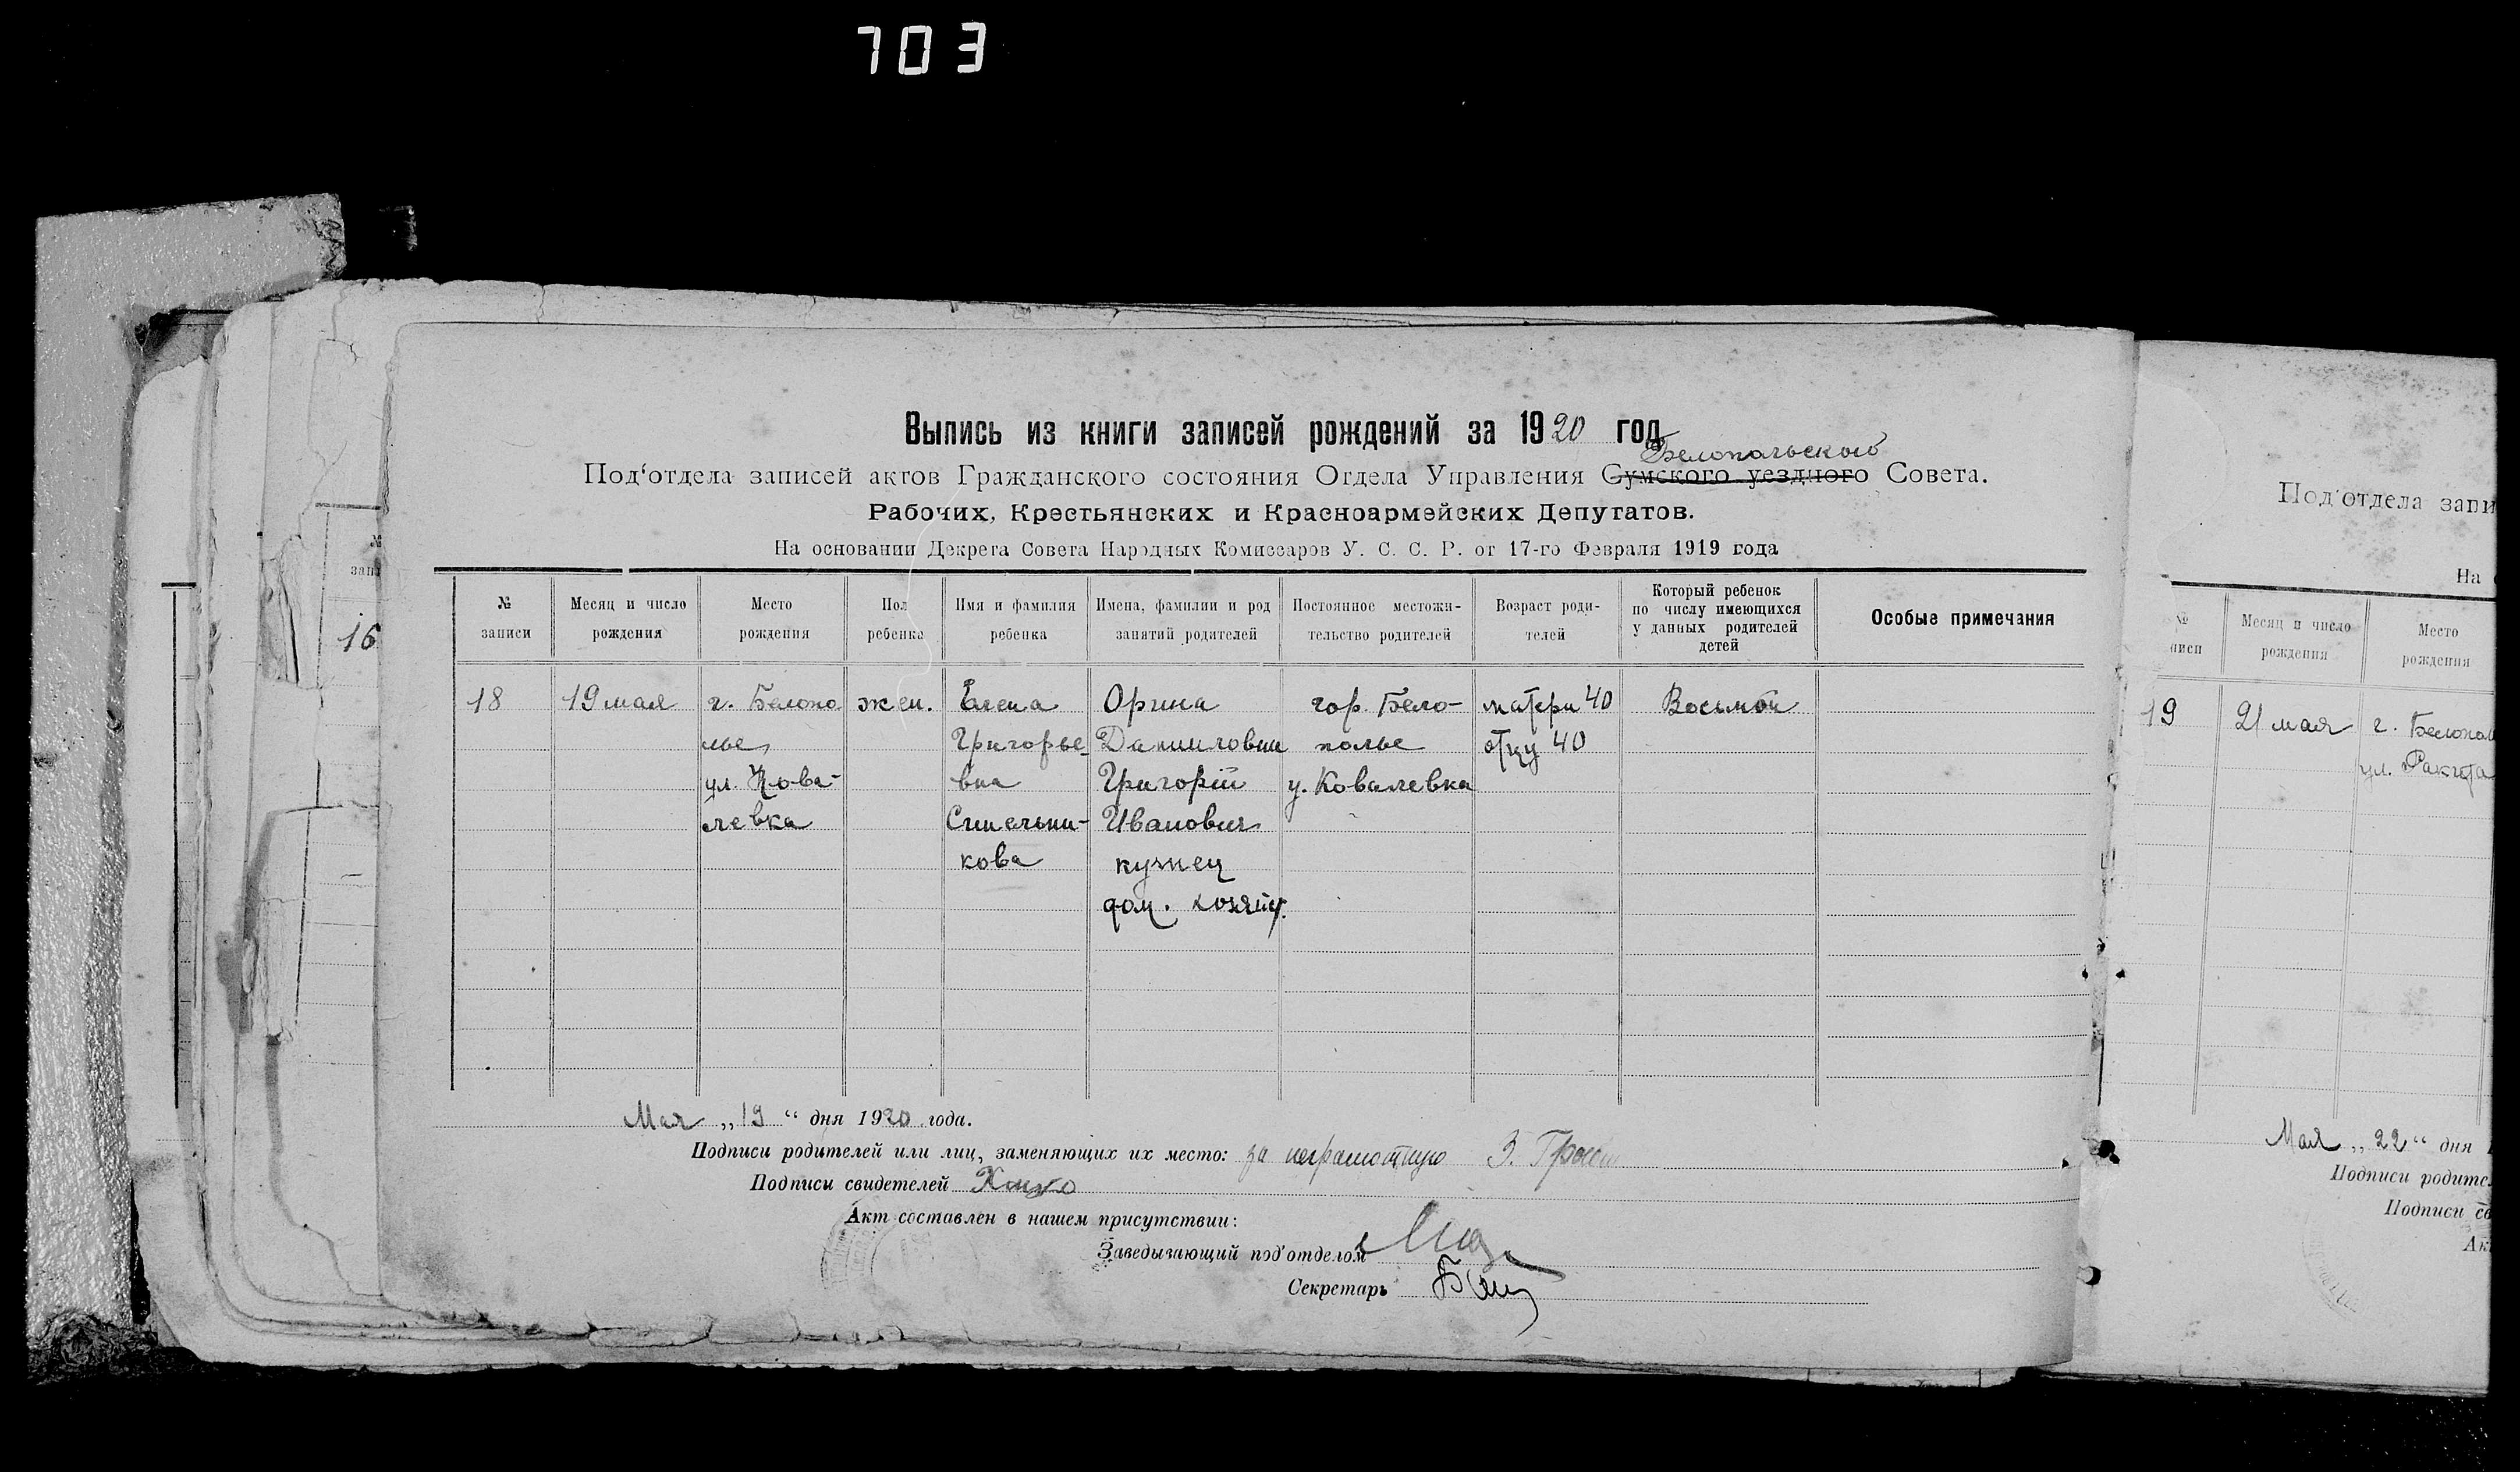 703
Выпись из книги записей рождений за 1920 год
Белопольского
Под‘отдела записей актов Гражданского состояния Отдела Управления Сумского уездного Совета.
Рабочих, Крестьянских и Красноармейских Депутатов.
На основании Декрета Совета Народных Комиссаров У. С. С. Р. от 17-го Февраля 1919 года
№
записи
Месяц и число
рождения
Место
рождения
Пол
ребенка
Имя и фамилия
ребенка
Имена, фамилии и род
занятий родителей
Постоянное местожи-
тельство родителей
Возраст роди-
телей
Который ребенок
по числу имеющихся
у данных родителей
детей
Особые примечания
18
19 мая
г. Белопо
лье
ул. Кова-
левка
жен.
Елена
Григорье-
вна
Синельни-
кова
Орина
Даниловна
Григорій
Иванович
кузнец
дом. хозяйк.
гор. Бело-
полье
у. Ковалевка
матери 40
отцу 40
Восьмой
Мая „19“ дня 1920 года.
Подписи родителей или лиц, заменяющих их место: за неграмотную З.
Подписи свидетелей
Акт составлен в нашем присутствии:
Заведывающий под‘отделом
Секретарь
16
Под‘отдела запи
На
№
Месяц и число
рождения
Место
рождения
19
21 мая
г. Белопол
ул. Ракита
Мая „22“ дня
Подписи родите
Подписи св
Ак